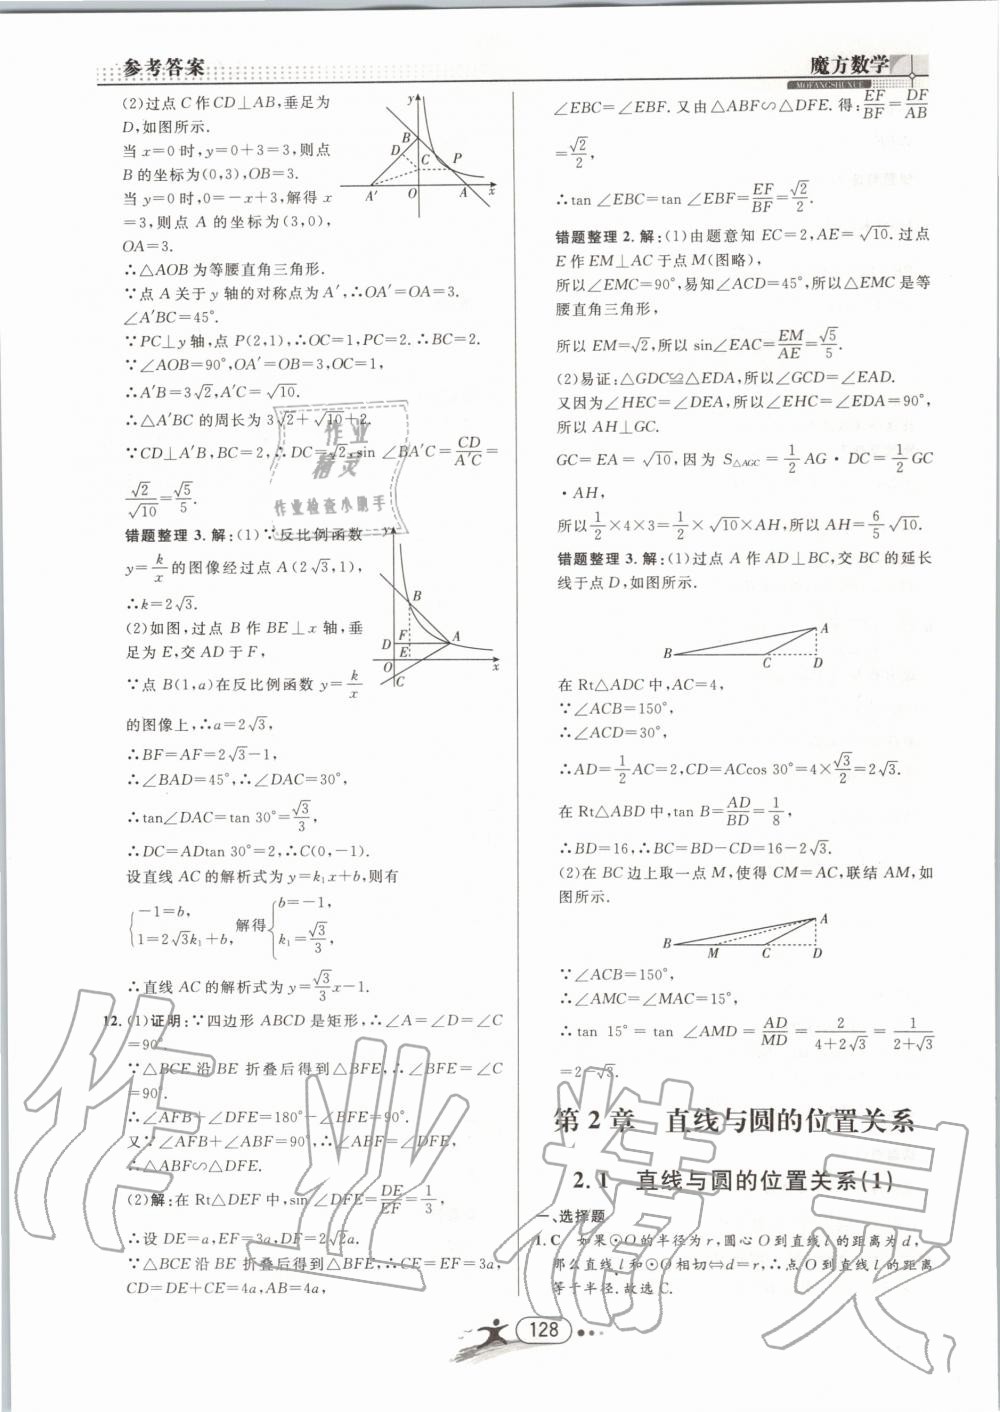 参考答案
魔方数学
MOFANGSHUXUE
(2)过点 C 作 CD⊥AB,垂足为
D,如图所示.
当 x=0 时,y=0+3=3,则点
B 的坐标为(0,3),OB=3.
当 y=0 时,0=-x+3,解得 x
=3,则点 A 的坐标为(3,0),
OA=3.
∴△AOB 为等腰直角三角形.
∵点 A 关于 y 轴的对称点为 A′,∴OA′=OA=3.
∠A′BC=45°.
∵PC⊥y 轴,点 P(2,1),∴OC=1,PC=2.∴BC=2.
∵∠AOB=90°,OA′=OB=3,OC=1,
∴A′B=3√2,A′C=√10.
∴△A′BC 的周长为 3√2+√10+2.
∵CD⊥A′B,BC=2,∴DC=√2,sin∠BA′C=CD/A′C=
√2/√10=√5/5.
错题整理 3. 解:(1)∵反比例函数
y=k/x的图像经过点 A(2√3,1),
∴k=2√3.
(2)如图,过点 B 作 BE⊥x 轴,垂
足为 E,交 AD 于 F,
∵点 B(1,a)在反比例函数 y=k/x
的图像上,∴a=2√3,
∴BF=AF=2√3-1,
∴∠BAD=45°,∴∠DAC=30°,
∴tan∠DAC=tan 30°=√3/3,
∴DC=ADtan 30°=2,∴C(0,-1).
设直线 AC 的解析式为 y=k₁x+b,则有
{-1=b, 1=2√3k₁+b, 解得{b=-1, k₁=√3/3,
∴直线 AC 的解析式为 y=√3/3x-1.
12. (1)证明:∵四边形 ABCD 是矩形,∴∠A=∠D=∠C
=90°.
∵△BCE 沿 BE 折叠后得到△BFE,∴∠BFE=∠C
=90°.
∴∠AFB+∠DFE=180°-∠BFE=90°.
又∵∠AFB+∠ABF=90°,∴∠ABF=∠DFE,
∴△ABF∽△DFE.
(2)解:在 Rt△DEF 中,sin∠DFE=DE/EF=1/3,
∴设 DE=a,EF=3a,DF=2√2a.
∵△BCE 沿 BE 折叠后得到△BFE,∴CE=EF=3a,
CD=DE+CE=4a,AB=4a,
∠EBC=∠EBF. 又由△ABF∽△DFE. 得:EF/BF=DF/AB
=√2/2,
∴tan∠EBC=tan∠EBF=EF/BF=√2/2.
错题整理 2. 解:(1)由题意知 EC=2,AE=√10. 过点
E 作 EM⊥AC 于点 M(图略),
所以∠EMC=90°,易知∠ACD=45°,所以△EMC 是等
腰直角三角形,
所以 EM=√2,所以 sin∠EAC=EM/AE=√5/5.
(2)易证:△GDC≌△EDA,所以∠GCD=∠EAD.
又因为∠HEC=∠DEA,所以∠EHC=∠EDA=90°,
所以 AH⊥GC.
GC=EA=√10,因为 S△AGC=1/2AG·DC=1/2GC
·AH,
所以1/2×4×3=1/2×√10×AH,所以 AH=6/5√10.
错题整理 3. 解:(1)过点 A 作 AD⊥BC,交 BC 的延长
线于点 D,如图所示.
A
B C D
在 Rt△ADC 中,AC=4,
∵∠ACB=150°,
∴∠ACD=30°,
∴AD=1/2AC=2,CD=ACcos 30°=4×√3/2=2√3.
在 Rt△ABD 中,tan B=AD/BD=1/8,
∴BD=16,∴BC=BD-CD=16-2√3.
(2)在 BC 边上取一点 M,使得 CM=AC,联结 AM,如
图所示.
A
B M C D
∵∠ACB=150°,
∴∠AMC=∠MAC=15°,
∴tan 15°=tan∠AMD=AD/MD=2/(4+2√3)=1/(2+√3)
=2-√3.
第 2 章 直线与圆的位置关系
2.1 直线与圆的位置关系(1)
一、选择题
1. C 如果⊙O 的半径为 r,圆心 O 到直线 l 的距离为 d,
那么直线 l 和⊙O 相切⇔d=r,∴点 O 到直线 l 的距离
等于半径.故选 C.
128
作业精灵
作业
精灵
作业检查小助手